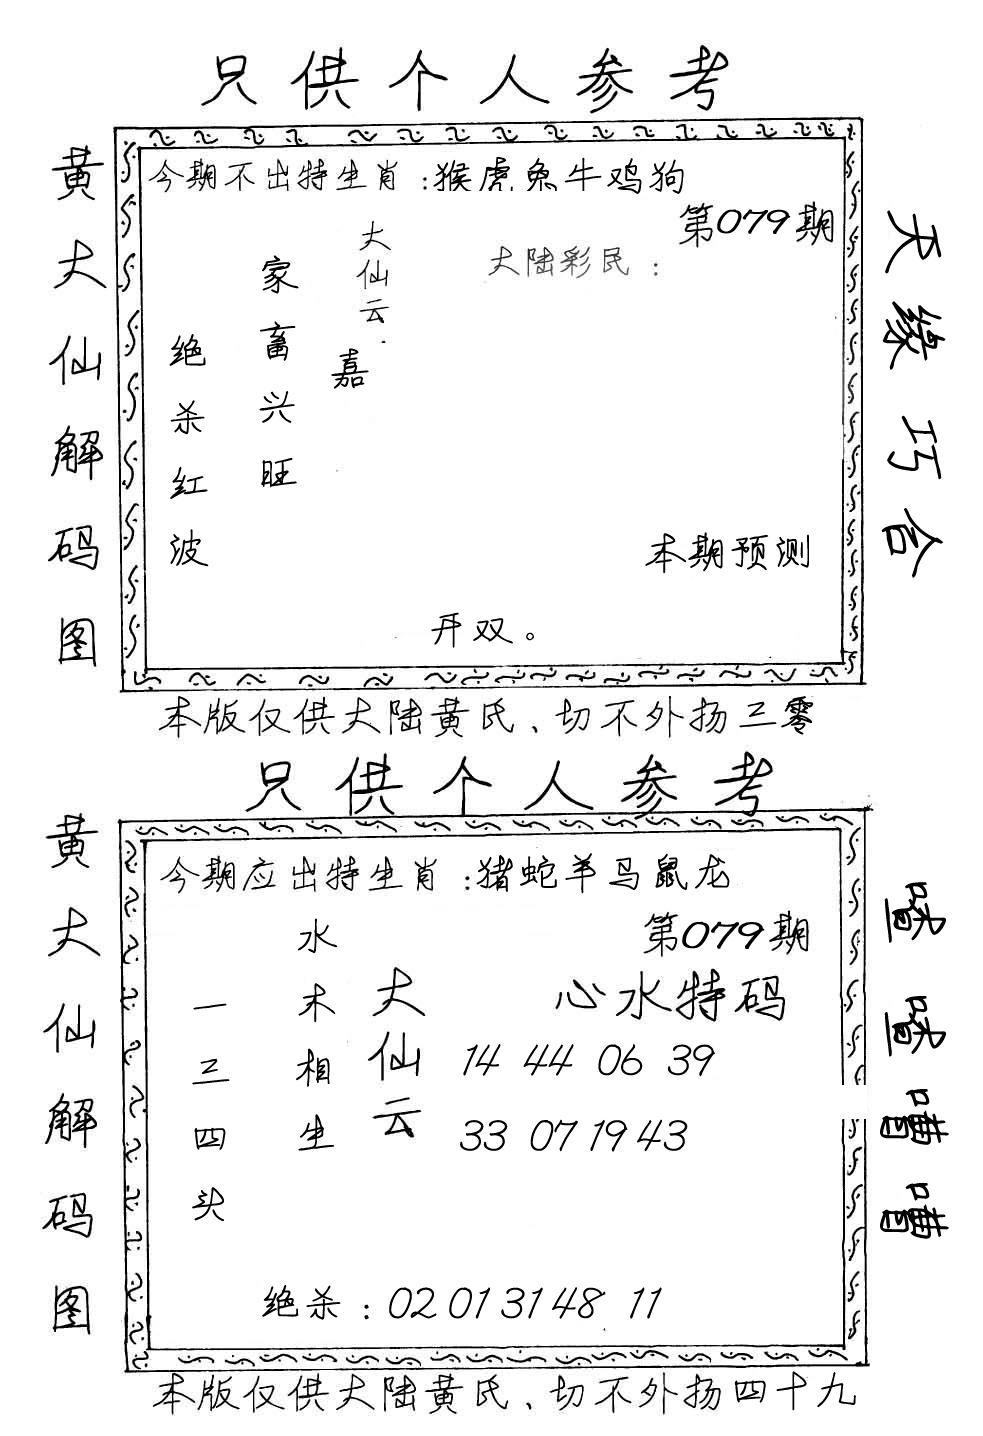 只供个人参考
黄大仙解码图
今期不出特生肖:猴虎兔牛鸡狗
第079期
大陆彩民:
大仙云.
嘉
家畜兴旺
绝杀红波
本期预测
开双。
天缘巧合
本版仅供大陆黄氏、切不外扬三零
只供个人参考
黄大仙解码图
今期应出特生肖:猪蛇羊马鼠龙
第079期
心水特码
大仙云
14 44 06 39
33 07 19 43
水木相生
一三四头
绝杀:02 01 31 48 11
本版仅供大陆黄氏、切不外扬四十九